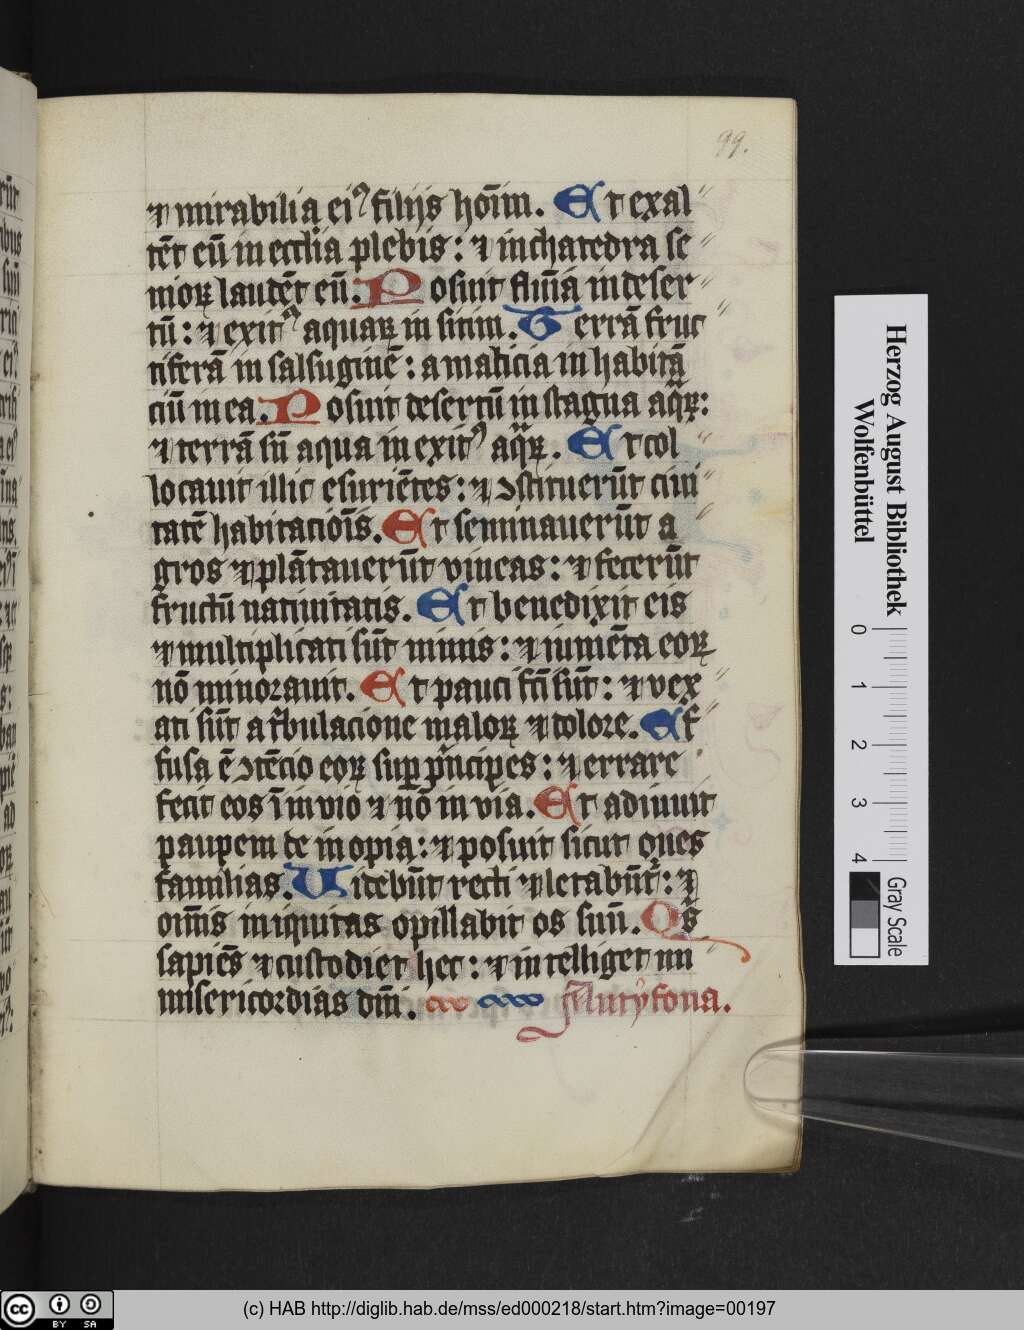 99.
⁊ mirabilia eiꝰ filijs hoīm. Et exal〃
tēt eū in eccl̄ia plebis: ⁊ in chatedra se〃
nioꝝ laudēt eū. Posuit flūīa in deser〃
tū: ⁊ exitꝰ aquaꝝ in sitim. Terrā fruc〃
tiferā in salsuginē: a malicia in habitā
ciū in ea. Posuit desertū in stagna aqͣꝝ:
⁊ terrā sn̄ aqua in exitꝰ aqͣꝝ. Et col〃
locauit illic esuriētes: ⁊ ꝯstituerūt ciui〃
tatē habitacioīs. Et seminauerūt a〃
gros ⁊ plātauerūt vineas: ⁊ fecerūt
fructū natiuitatis. Et benedixit eis
⁊ multiplicati sūt nimis: ⁊ iumēta eoꝝ
nō minorauit. Et pauci fc̄i sūt: ⁊ vex〃
ati sūt a tͥbulacione maloꝝ ⁊ dolore. Ef〃
fusa ē ꝯtēcio eoꝝ suꝑ pͥncipes: ⁊ errare
fecit eos ī inuio ⁊ nō in via. Et adiuuit
pauꝑem de inopia: ⁊ posuit sicut oues
familias. Uidebūt recti ⁊ letabūt͛: ⁊
oīnis iniquitas opillabit os suū. Qͥs
sapiēs ⁊ custodiet hec: ⁊ intelliget mi
misericordias dn̄i. Antyfona.
Herzog August Bibliothek
Wolfenbüttel
0 1 2 3 4
Gray Scale
cc BY SA
(c) HAB http://diglib.hab.de/mss/ed000218/start.htm?image=00197